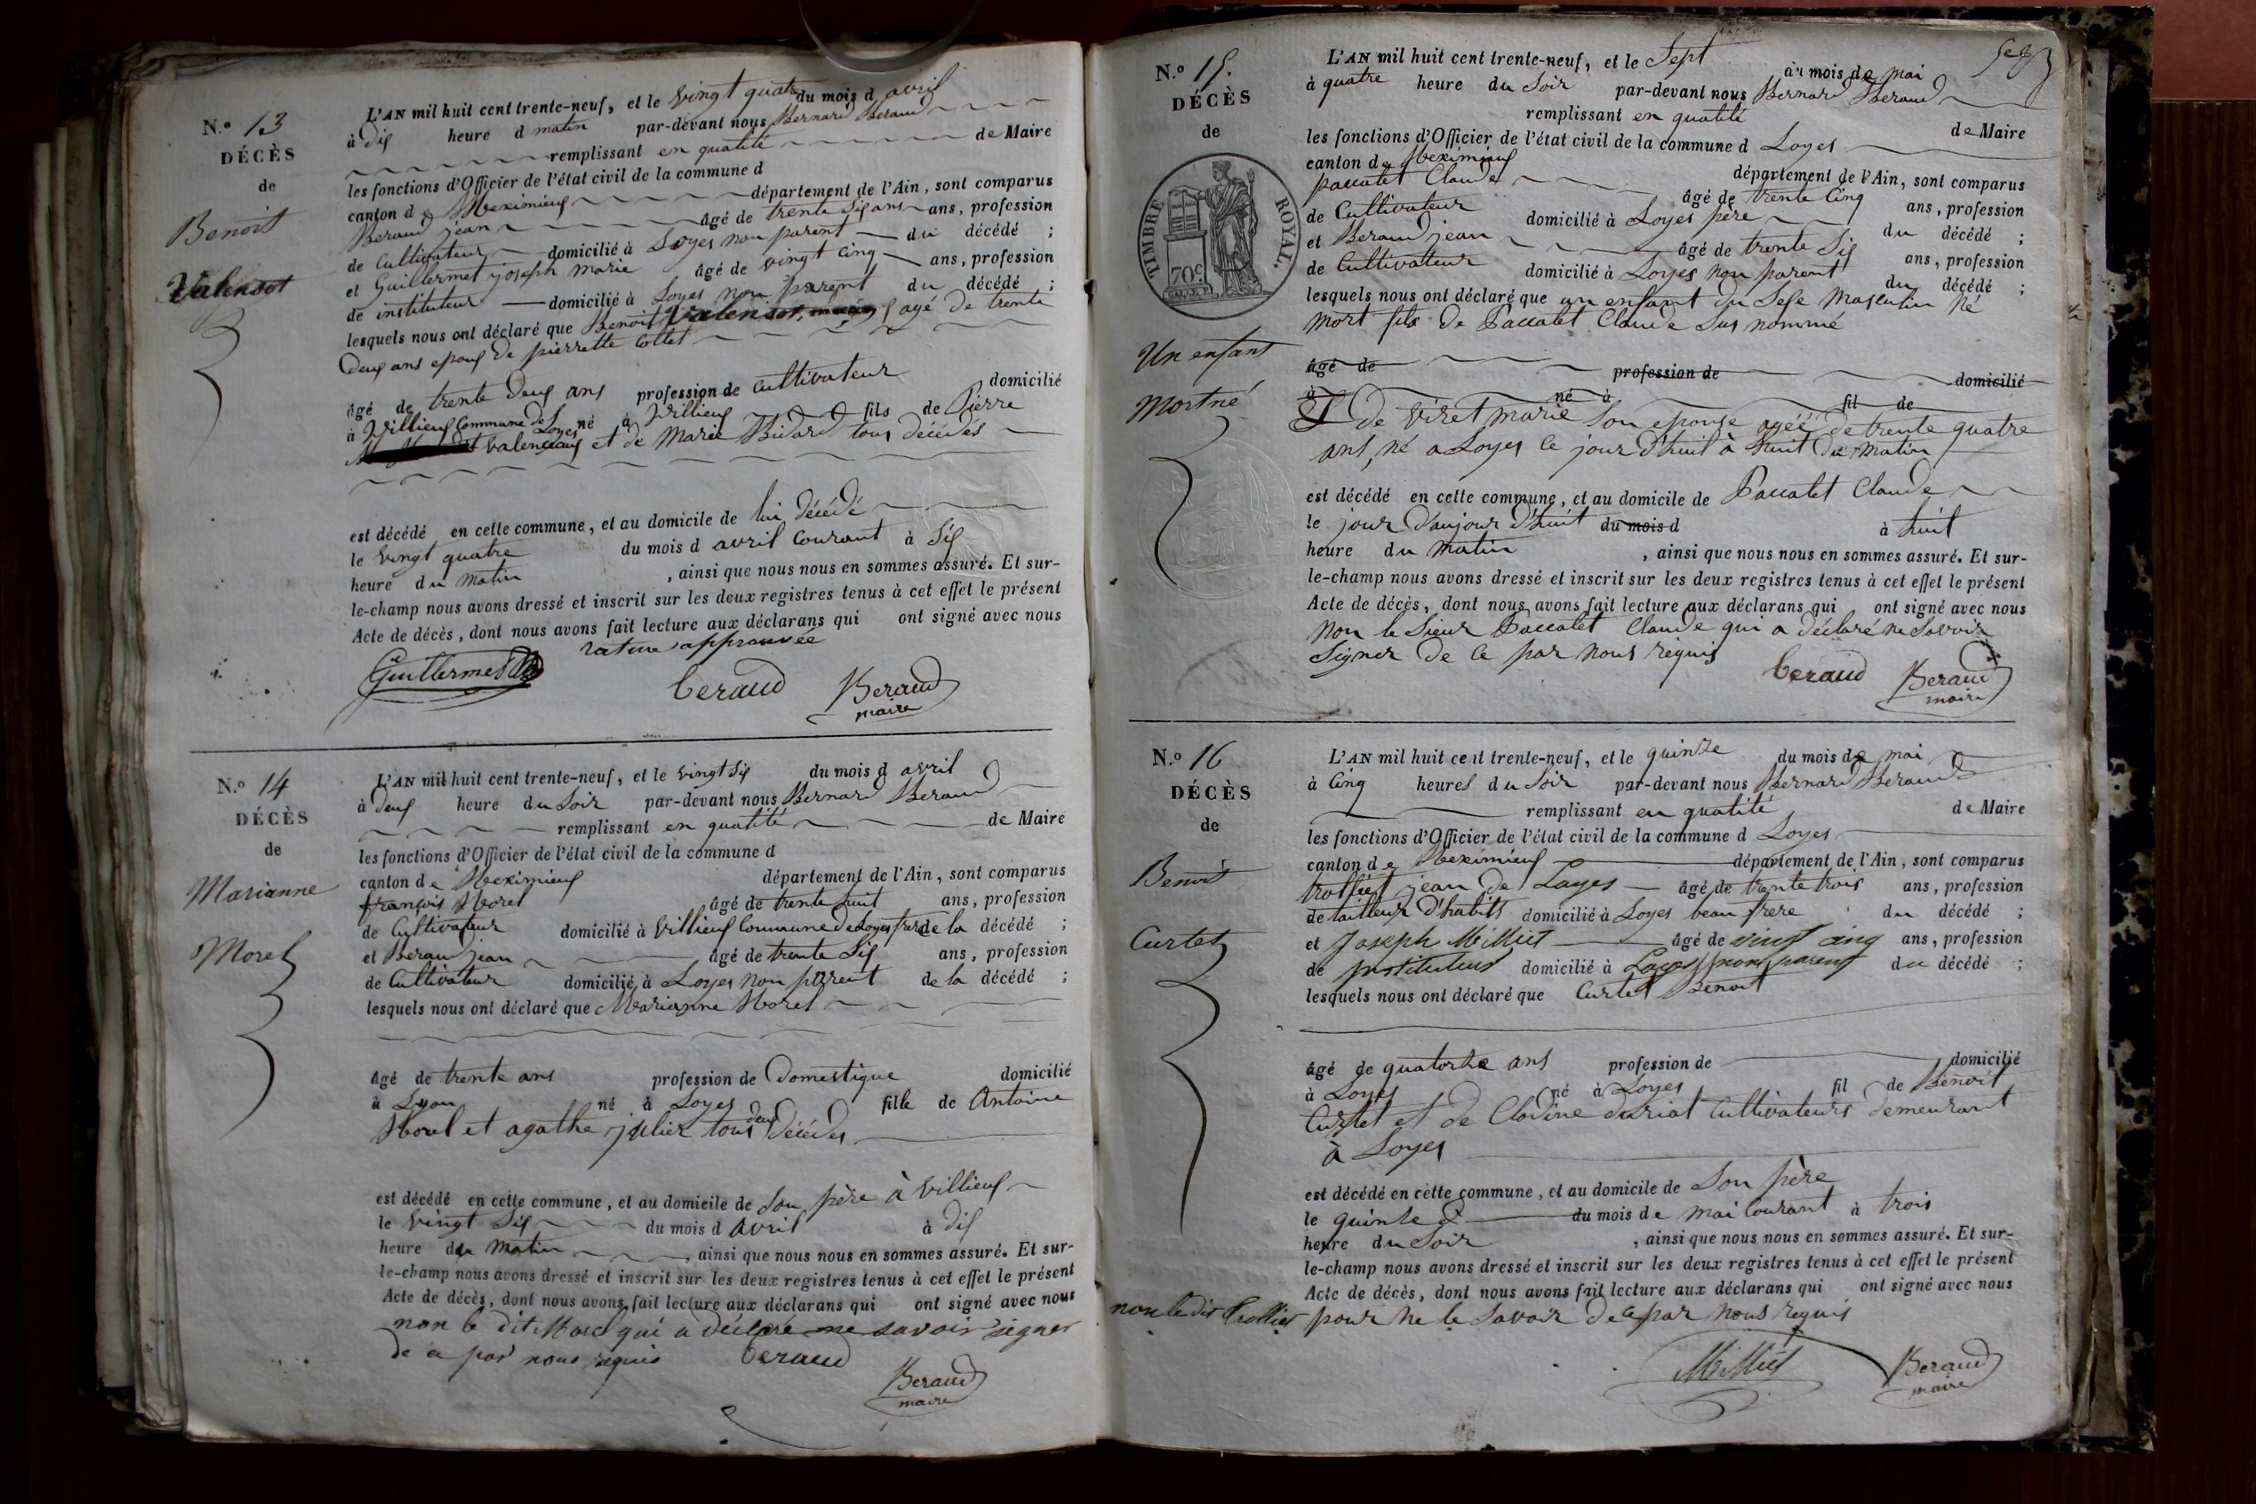 N.° 13
DÉCÈS
de
Benoit
Valensot
L'AN mil huit cent trente-neuf, et le vingt quatre du mois d avril
à dix heure d matin par-devant nous Bernard Beraud
remplissant en qualité de Maire
les fonctions d'Officier de l'état civil de la commune d
canton de Meximieux département de l'Ain, sont comparus
Beraud jean âgé de trente six ans ans, profession
de Cultivateur domicilié à Loyes non parent du décédé ;
et Guillermet joseph marie âgé de vingt cinq ans, profession
de instituteur domicilié à Loyes non parent du décédé ;
lesquels nous ont déclaré que Benoit Valensot, agé de trente
deux ans epoux de pierrette Collet
âgé de trente deux ans profession de cultivateur domicilié
à Villieux Commune de Loyes né à Villieux fils de Pierre
valencaux et de Marie Bidard tous décédés
est décédé en cette commune, et au domicile de lui décédé
le vingt quatre du mois d avril courant à six
heure du matin , ainsi que nous nous en sommes assuré. Et sur-
le-champ nous avons dressé et inscrit sur les deux registres tenus à cet effet le présent
Acte de décès, dont nous avons fait lecture aux déclarans qui ont signé avec nous
rature approuvée
Guillermet
beraud
Beraud
maire
N.° 14
DÉCÈS
de
Marianne
Morel
L'AN mil huit cent trente-neuf, et le vingt six du mois d avril
à deux heure du Soir par-devant nous Bernard Beraud
remplissant en qualité de Maire
les fonctions d'Officier de l'état civil de la commune d
canton de Meximieux département de l'Ain, sont comparus
françois Morel âgé de trente huit ans, profession
de Cultivateur domicilié à Villieux Commune de Loyes frere de la décédé ;
et Beraud jean âgé de trente Six ans, profession
de Cultivateur domicilié à Loyes non parent de la décédé ;
lesquels nous ont déclaré que Marianne Morel
âgé de trente ans profession de Domestique domicilié
à Lyon né à Loyes fille de Antoine
Morel et agathe julier tous deux décédés
est décédé en cette commune, et au domicile de Son père à Villieux
le vingt Six du mois d avril à dix
heure du matin , ainsi que nous nous en sommes assuré. Et sur-
le-champ nous avons dressé et inscrit sur les deux registres tenus à cet effet le présent
Acte de décès, dont nous avons fait lecture aux déclarans qui ont signé avec nous
non le dit Morel qui a déclaré ne savoir signer
de ce par nous requis
beraud
Beraud
maire
N.° 15.
DÉCÈS
de
TIMBRE ROYAL.
70c
Un enfant
Mort né
L'AN mil huit cent trente-neuf, et le Sept du mois de mai
à quatre heure du Soir par-devant nous Bernard Beraud
remplissant en qualité de Maire
les fonctions d'Officier de l'état civil de la commune d Loyes
canton de Meximieux département de l'Ain, sont comparus
paccalet Claude âgé de trente Cinq ans, profession
de Cultivateur domicilié à Loyes père du décédé ;
et Beraud jean âgé de trente Six ans, profession
de Cultivateur domicilié à Loyes non parent du décédé ;
lesquels nous ont déclaré que un enfant du Sexe Masculin né
mort fils de Paccalet Claude Sus nommé
âgé de profession de domicilié
à né à fil de
& de Viret marie Son epouse agéé de trente quatre
ans, né a Loyes ce jour d'huit à huit du matin
est décédé en cette commune, et au domicile de Paccalet Claude
le jour d'aujour d'huit du mois d à huit
heure du matin , ainsi que nous nous en sommes assuré. Et sur-
le-champ nous avons dressé et inscrit sur les deux registres tenus à cet effet le présent
Acte de décès, dont nous avons fait lecture aux déclarans qui ont signé avec nous
Non le Sieur Paccalet Claude qui a déclaré ne Savoir
Signer de ce par nous requis
beraud
Beraud
maire
N.° 16
DÉCÈS
de
Benoit
Curtet
L'AN mil huit cent trente-neuf, et le quinze du mois de mai
à Cinq heures du Soir par-devant nous Bernard Beraud
remplissant en qualité de Maire
les fonctions d'Officier de l'état civil de la commune d Loyes
canton de Meximieux département de l'Ain, sont comparus
trollier jean de Loyes âgé de trente trois ans, profession
de tailleur d'habits domicilié à Loyes beau frere du décédé ;
et Joseph Milliet âgé de vingt cinq ans, profession
de Instituteur domicilié à Loyes non parent du décédé ;
lesquels nous ont déclaré que Curtet Benoit
âgé de quatorze ans profession de domicilié
à Loyes né à Loyes fil de Benoit
Curtet et de Clodine duriat Cultivateurs demeurant
à Loyes
est décédé en cette commune, et au domicile de Son père
le quinze du mois de mai Courant à trois
heure du Soir , ainsi que nous nous en sommes assuré. Et sur-
le-champ nous avons dressé et inscrit sur les deux registres tenus à cet effet le présent
Acte de décès, dont nous avons fait lecture aux déclarans qui ont signé avec nous
non le dit trollier pour ne le Savoir de ce par nous requis
Milliet
Beraud
maire